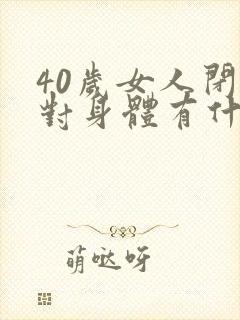 40歲女人閉
對身體有什
萌噠呀